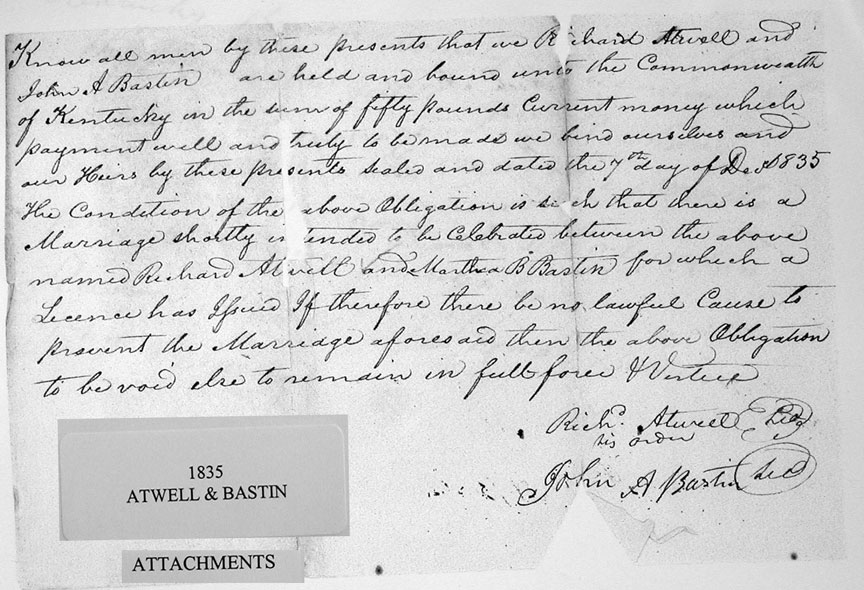 Know all men by these presents that we Richard Atwell and
John A Bastin are held and bound unto the Commonwealth
of Kentucky in the sum of fifty pounds Current money which
payment well and truly to be made we bind ourselves and
our Heirs by these presents Sealed and dated the 7th day of 1835
The Condition of the above Obligation is such that there is a
Marriage shortly intended to be Celebrated between the above
named Richard Atwell and Martha B Bastin for which a
Licence has Issued If therefore there be no lawful Cause to
prevent the Marriage aforesaid then the above Obligation
to be void else to remain in full force & Vertue
Richd. Atwell
his order
John A Bastin
1835
ATWELL & BASTIN
ATTACHMENTS